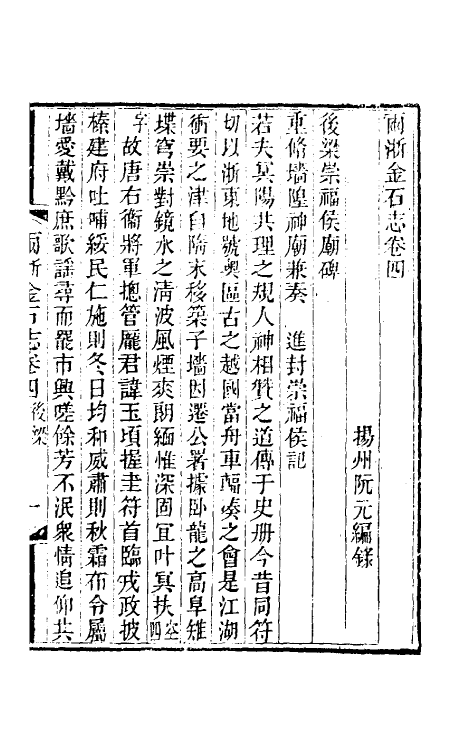 兩浙金石志卷四
揚州阮元編錄
後梁崇福侯廟碑
重脩墻隍神廟兼奏　進封崇福侯記
若夫冥陽共理之規人神相贊之道傳于史册今昔同符
切以浙東地號奧區古之越國當舟車輻湊之會是江湖
衝要之津自隋末移築子墻因遷公署據卧龍之高阜雉
堞穹崇對鏡水之清波風煙爽朗緬惟深固冝叶冥扶空四
字故唐右衞將軍摠管龐君諱玉頃握圭符首臨戎政披
榛建府吐哺綏民仁施則冬日均和威肅則秋霜布令屬
墻愛戴黔庶歌謡尋而罷市興嗟餘芳不泯衆情追仰共
兩浙金石志卷四 後梁 一